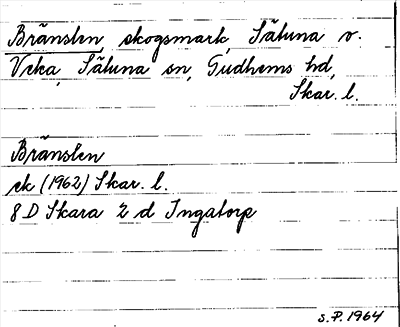 Bränslen, skogsmark, Sätuna v.
Veka, Sätuna sn, Gudhems hd,
Skar. l.
Bränslen
ek (1962) Skar. l.
8 D Skara 2 d Ingatorp
S.P. 1964